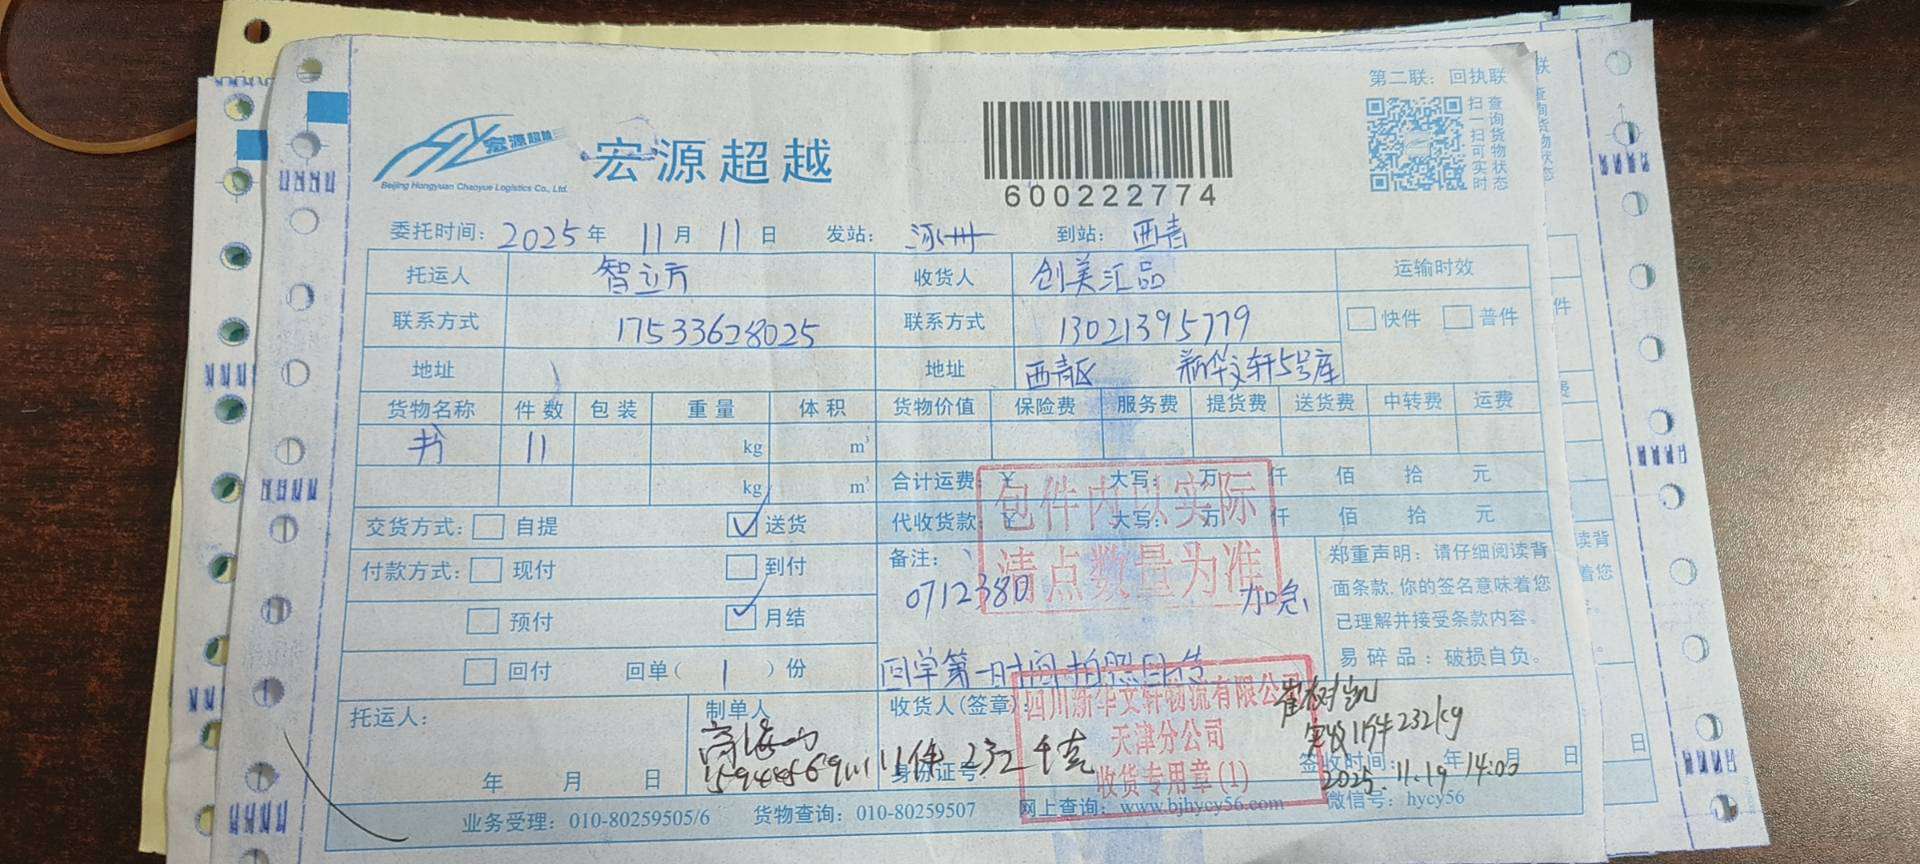 第二联：回执联
宏源超越
Beijing Hongyuan Chaoyue Logistics Co., Ltd.
宏源超越
600222774
查询货物状态
扫一扫可实时
委托时间：2025年 11月 11日 发站：涿州 到站：西青
托运人 智立方 收货人 创美汇品 运输时效
联系方式 17533628025 联系方式 13021395779 快件 普件
地址 地址 西青区 新华文轩5号库
货物名称 件数 包装 重量 体积 货物价值 保险费 服务费 提货费 送货费 中转费 运费
书 11 kg m³
kg m³ 合计运费：¥ 大写： 万 仟 佰 拾 元
交货方式： 自提 送货 代收货款：¥ 大写： 万 仟 佰 拾 元
包件内以实际
清点数量为准
付款方式： 现付 到付 备注：
0712380 加急
预付 月结
回付 回单（ 1 ）份 回单第一时间拍照回传
郑重声明：请仔细阅读背
面条款,你的签名意味着您
已理解并接受条款内容。
易碎品：破损自负。
托运人： 制单人 收货人(签章)：
四川新华文轩物流有限公司
天津分公司
收货专用章(1)
崔树凯
实收11件232kg
11件 232千克
年 月 日 身份证号 签收时间： 年 月 日
2025.11.19 14:05
业务受理：010-80259505/6 货物查询：010-80259507 网上查询：www.bjhycy56.com 微信号：hycy56